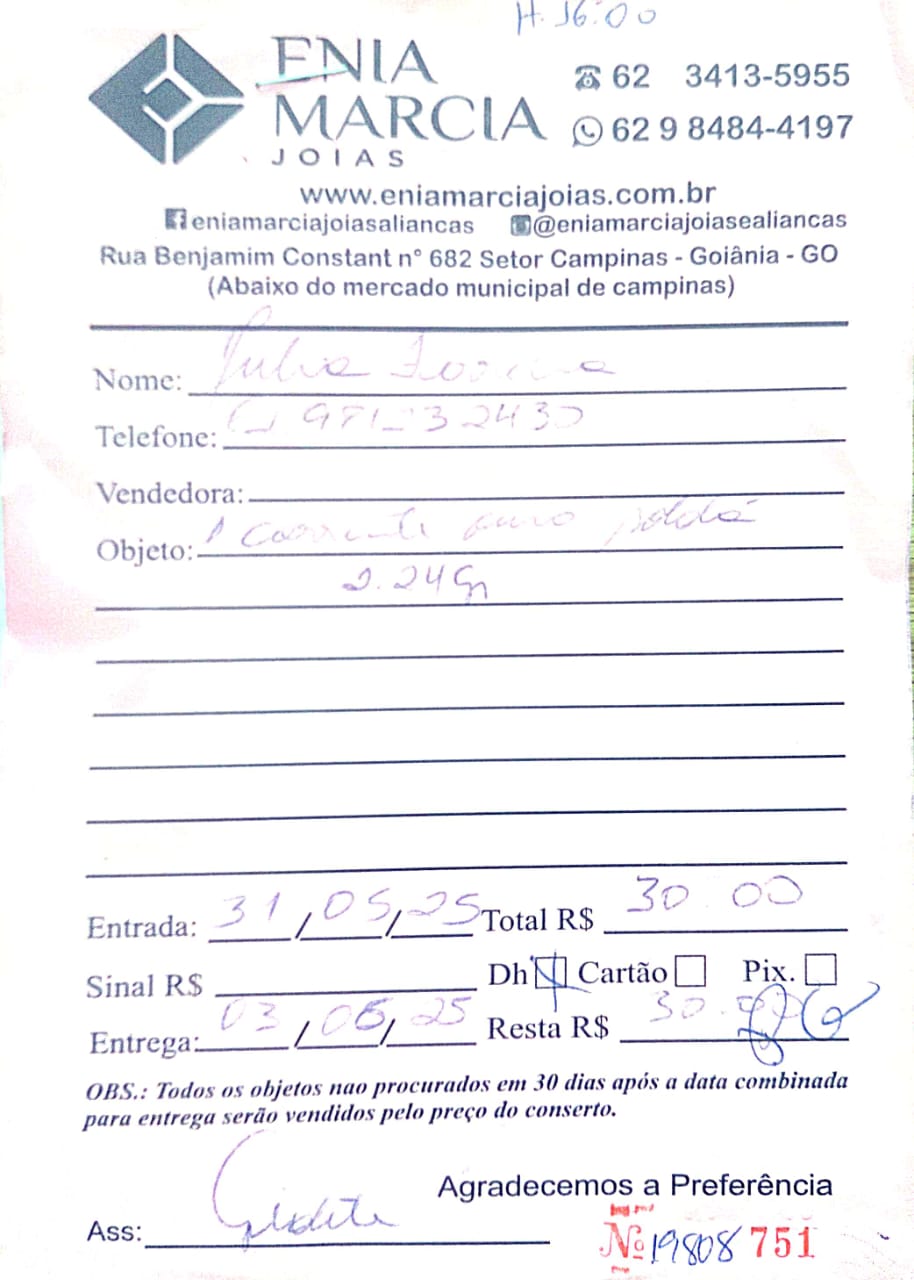 H. 16:00
ENIA
MARCIA
JOIAS
62 3413-5955
62 9 8484-4197
www.eniamarciajoias.com.br
eniamarciajoiasaliancas @eniamarciajoiasealiancas
Rua Benjamim Constant nº 682 Setor Campinas - Goiânia - GO
(Abaixo do mercado municipal de campinas)
Nome:
Telefone:
Vendedora:
Objeto: 1 corrente ouro solda
2.24 Gr
Entrada: 31/05/25 Total R$ 30.00
Sinal R$ Dh Cartão Pix.
Entrega: 03/06/25 Resta R$ 30.00
OBS.: Todos os objetos nao procurados em 30 dias após a data combinada
para entrega serão vendidos pelo preço do conserto.
Agradecemos a Preferência
Ass:
Nº 19808 751